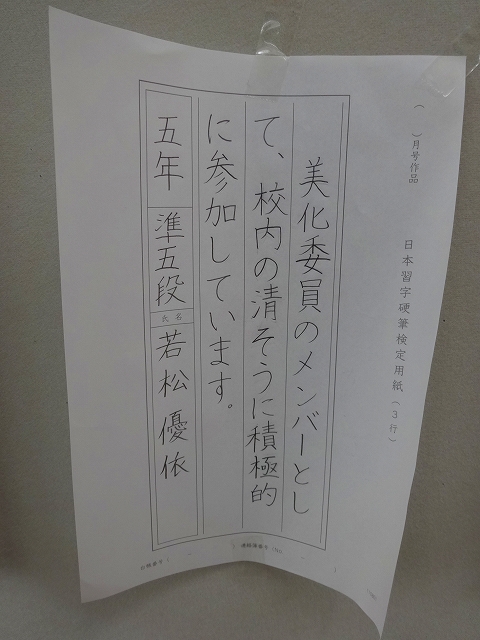 （　　）月号作品
日本習字硬筆検定用紙（３行）
美化委員のメンバーとし
て、校内の清そうに積極的
に参加しています。
五年 準五段 氏名 若松優依